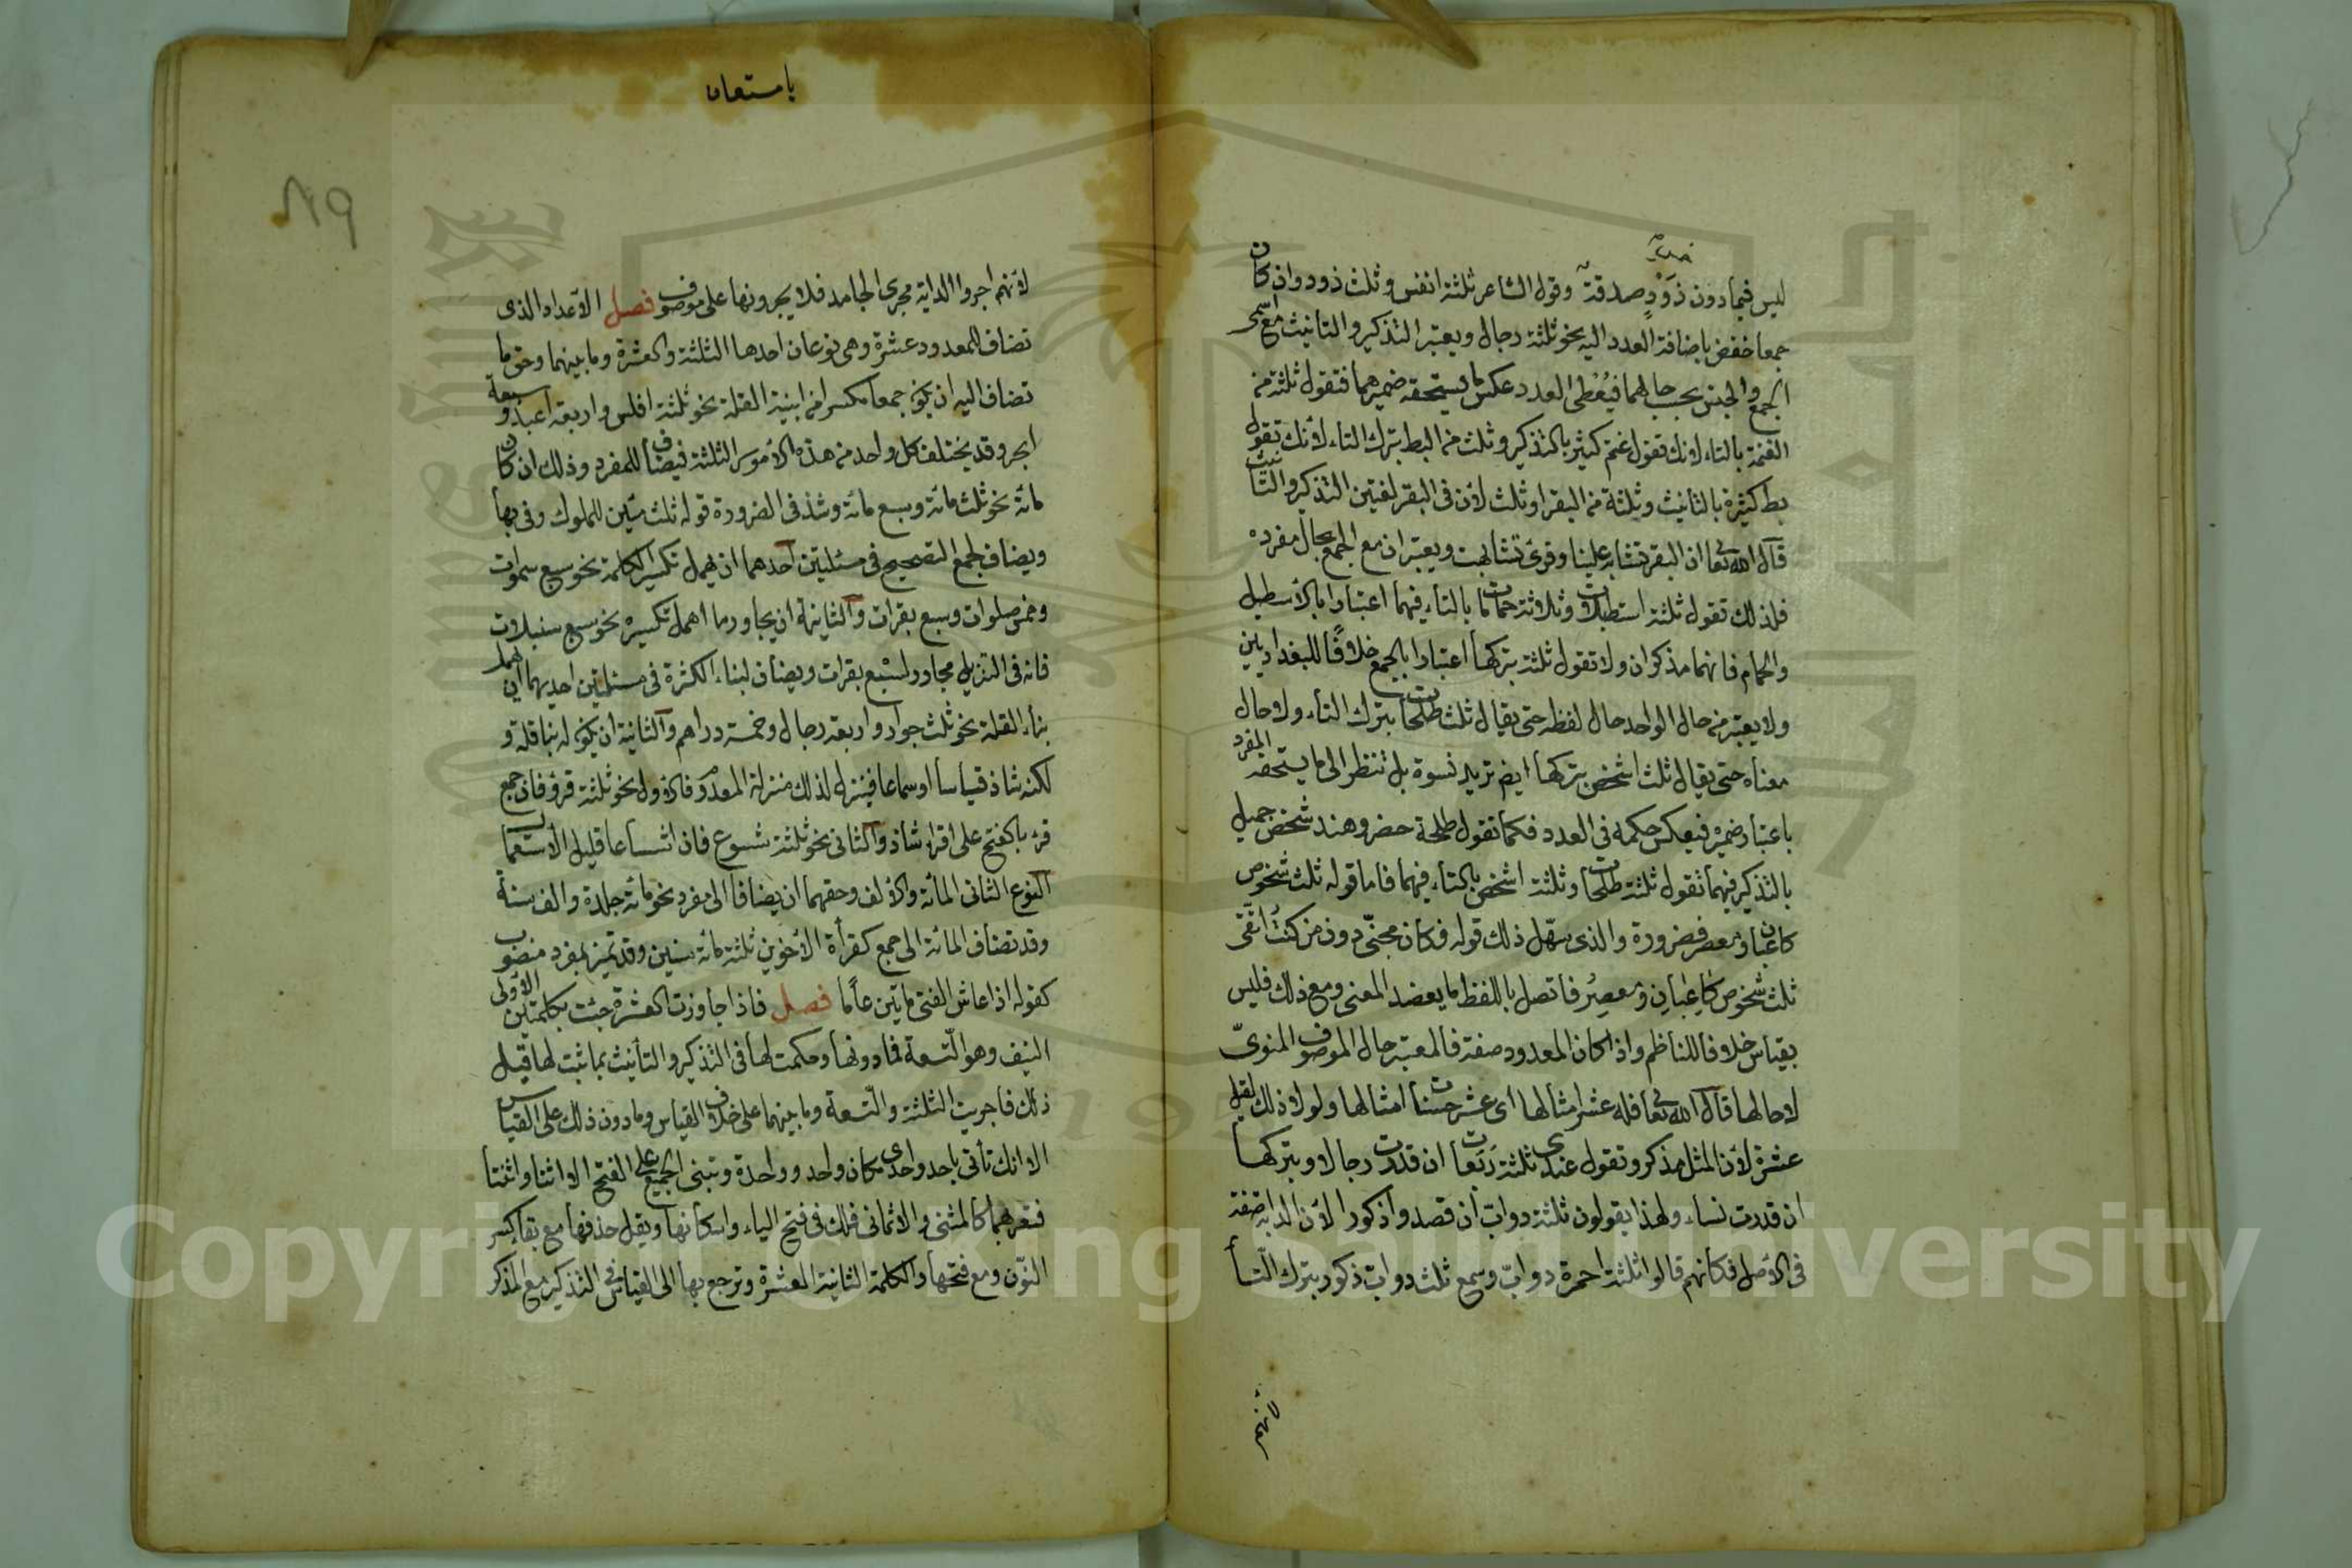 ليس فيما دون ذَوْدٍ صدقة وقول الشاعر ثلثة انفس وثلث ذود وان كان
جمعا خفض باضافة العدد اليه نحو ثلثة رجال ويعتبر التذكير والتانيث مع اسمى
الجمع والجنس بحسب حالهما فيُعْطى العدد عكس ما يستحقه ضميرهما فتقول ثلثة من
الغنم بالتاء لانك تقول غنم كثير بالتذكير وثلث من البط بترك التاء لأنك تقول
بط كثيرة بالتانيث وثلثة من البقر او ثلث لأن فى البقر لغتين التذكير والتانيث
قال الله تعا ان البقر تشابه علينا وقرئ تشابهت ويعتبران مع الجمع بحال مفرده
فلذلك تقول ثلثة اسطبلات وثلاثة حمامات بالتاء فيهما اعتبارا بالأسطبل
والحمام فانهما مذكران ولا تقول ثلثة بتركها اعتبارا بالجمع خلافًا للبغداديين
ولا يعتبر من حال الواحد حال لفظه حتى يقال ثلث طلحات بترك التاء ولا حال
معناه حتى يقال ثلث اشخص بتركها ايض تريد نسوة بل تنظر الى ما يستحقه المفرد
باعتبار ضميره فيعكس حكمه فى العدد فكما تقول طلحة حضر وهند شخص جميل
بالتذكير فيهما تقول ثلثة طلحات وثلثة اشخص بالتاء فيهما فاما قوله ثلث شخوص
كاعبان ومعصر فضرورة والذى سهّل ذلك قوله فكان مجنّى دون من كنتُ اتّقى
ثلث شخوص كاعِبان ومعصِرُ فاتصل باللفظ ما يعضد المعنى ومع ذلك فليس
بقياس خلافا للناظم واذا كان المعدود صفة فالمعتبر حال الموصوف المنوىّ
لا حالها قال الله تعا فله عشر امثالها اى عشر حسنات امثالها ولولا ذلك لقيل
عشرة لأن المثل مذكر وتقول عندى ثلثة رَبَعات ان قدرت رجالا وبتركها
ان قدرت نساء ولهذا يقولون ثلثة دوابّ ان قصدوا ذكورا لأن الدابة صفة
فى الأصل فكانهم قالوا ثلثة احمرة دوابّ وسمع ثلث دوابّ ذكور بترك التّاء
لأنهم
٨٩
لأنهم اجروا الدابة مجرى الجامد فلا يجرونها على موصوف فصل الأعداد الذى
تضاف للمعدود عشرة وهى نوعان احدها الثلثة والعشرة وما بينهما وحق ما
تضاف اليه ان يكون جمعا مكسرا من ابنية القلة نحو ثلثة افلس واربعة اعبد وسبعة
ابحر وقد يختلف كل واحد من هذه الأمور الثلثة فيضاف للمفرد وذلك ان كان
مائة نحو ثلث مائة وسبع مائة وشذ فى الضرورة قوله ثلث مئين للملوك وفى بها
ويضاف لجمع التصحيح فى مسئلتين احدهما ان يهمل تكسير الكلمة نحو سبع سموات
وخمس صلوات وسبع بقرات والثانية ان يجاور ما اهمل تكسيره نحو سبع سنبلات
فانه فى التنزيل مجاور لسبع بقرات ويضاف لبناء الكثرة فى مسئلتين احديهما ان يهمل
بناء القلة نحو ثلث جوار واربعة رجال وخمسة دراهم والثانية ان يكون له بنا قلة و
لكنه شاذ قياسا او سماعا فينزل لذلك منزلة المعدوم فالاول نحو ثلثة قروء فان جمع
قرء بالفتح على اقراء شاذ والثانى نحو ثلثة شسوع فان اشساعا قليل الأستعمال
النوع الثانى المائة والألف وحقهما ان يضافا الى مفرد نحو مائة جلدة والف سنة
وقد تضاف المائة الى جمع كقرأة الأخوين ثلثة مائة سنين وقد تميز بمفرد منصوب
كقوله اذا عاش الفتى مايتين عامًا فصل فاذا جاوزت العشرة جئت بكلمتين الأولى
النيف وهو التّسعة فما دونها وحكمت لها فى التذكير والتأنيث بما ثبت لها قبل
ذلك فاجريت الثلثة والتّسعة وما بينهما على خلاف القياس وما دون ذلك على القياس
الا انك تأتى باحد واحدى مكان واحد وواحدة وتبنى الجميع على الفتح الا اثنا واثنتا
فتعربهما كالمثنى والا ثمانى فلك فى فتح الياء واسكانها ويقل حذفها مع بقا كسر
النّون ومع فتحها والكلمة الثانية العشرة وترجع بها الى القياس فى التذكير مع المذكر
Copyright © King Saud University